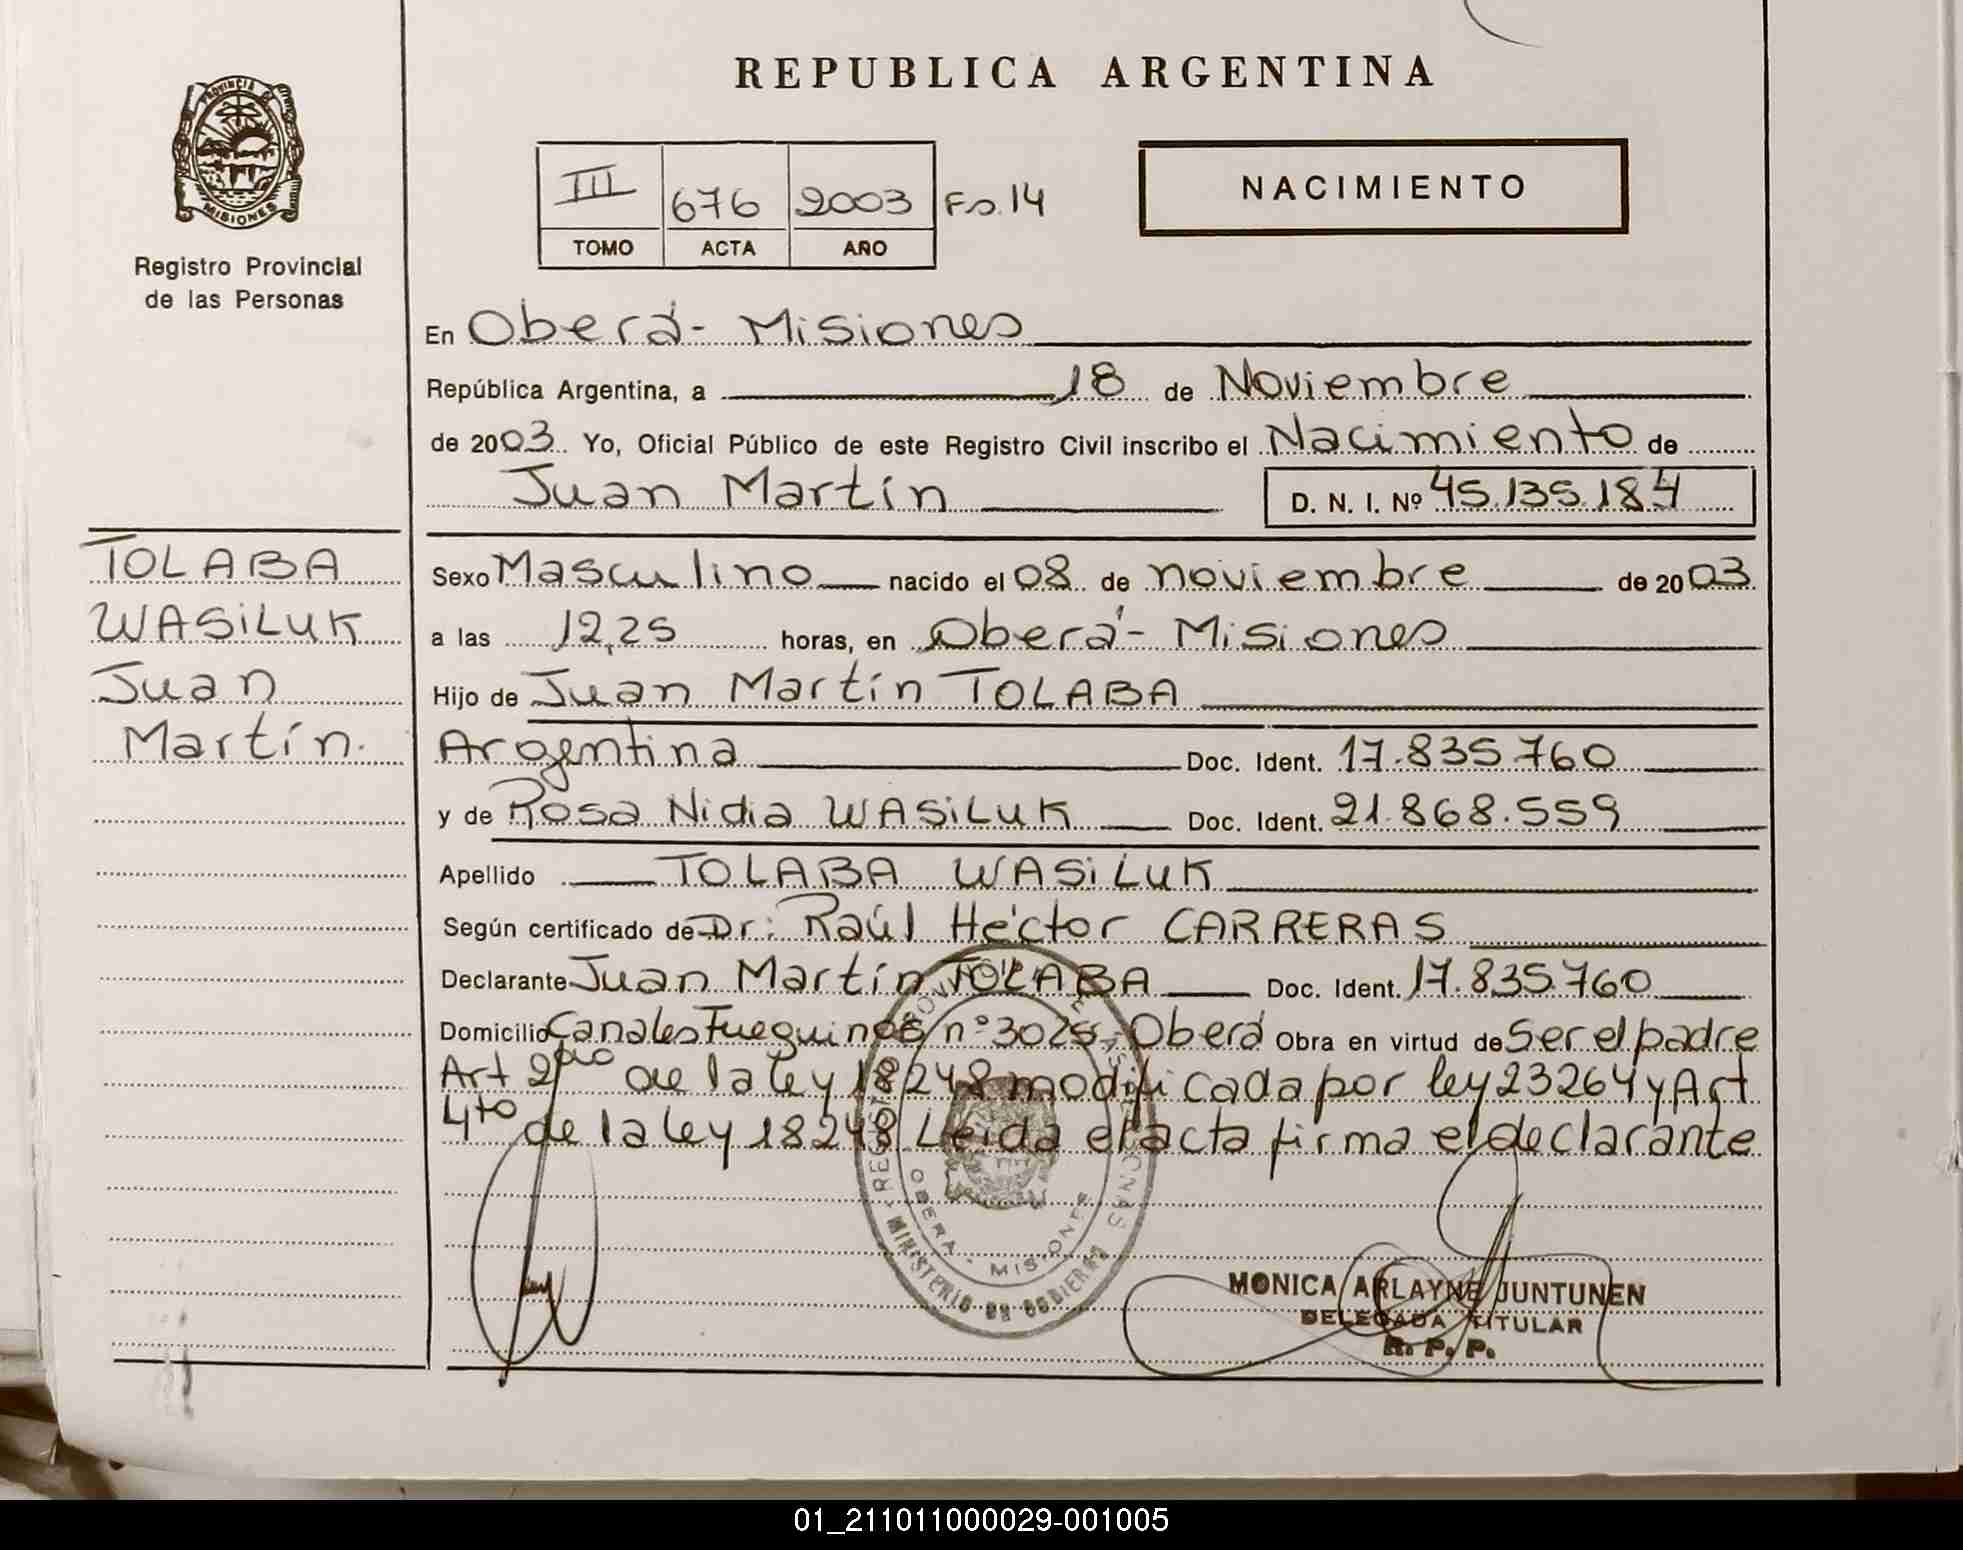 REPUBLICA ARGENTINA
PROVINCIA DE MISIONES
Registro Provincial
de las Personas
III 676 2003 Fo. 14
TOMO ACTA AÑO
NACIMIENTO
En Oberá - Misiones
República Argentina, a 18 de Noviembre
de 2003 Yo, Oficial Público de este Registro Civil inscribo el Nacimiento de
Juan Martín D. N. I. Nº 45.135.184
TOLABA
WASiLUK
Juan
Martín.
Sexo Masculino nacido el 08 de noviembre de 2003
a las 12,25 horas, en Oberá - Misiones
Hijo de Juan Martín TOLABA
Argentina Doc. Ident. 17.835.760
y de Rosa Nidia WASiLUK Doc. Ident. 21.868.559
Apellido TOLABA WASiLUK
Según certificado de Dr: Raúl Héctor CARRERAS
Declarante Juan Martín TOLABA Doc. Ident. 17.835.760
Domicilio Canales Fueguinos nº 3025 - Oberá Obra en virtud de Ser el padre
Art 2do de la ley 18248 modificada por ley 23264 y Art
4to de la ley 18248 Leida el acta firma el declarante
OBERA - MISIONES
MINISTERIO DE GOBIERNO
MONICA ARLAYNE JUNTUNEN
DELEGADA TITULAR
R. P. P.
01_211011000029-001005